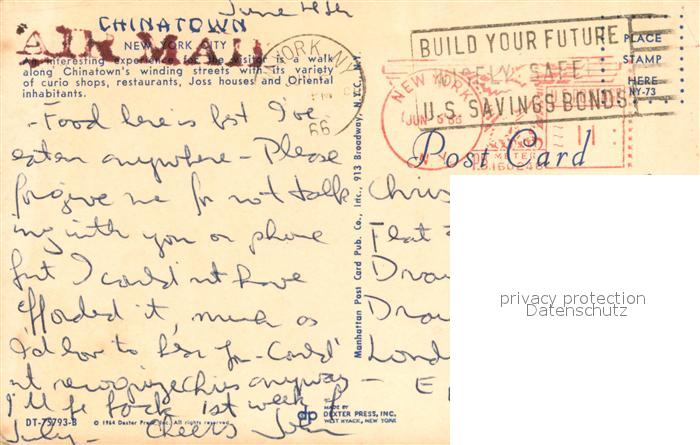 June 4th
CHINATOWN
AIR MAIL
NEW YORK CITY
An interesting experience for the visitor is a walk
along Chinatown's winding streets with its variety
of curio shops, restaurants, Joss houses and Oriental
inhabitants.
- Food here is best I've
eaten anywhere - Please
forgive me for not talk
ing with you on phone
but I could nt have
afforded it, much as
I'd love to hear you - Could
nt recognize anyway -
I'll be back 1st week of
July - Cheers John
DT-75793-B
© 1964 Dexter Press, Inc. All rights reserved
Manhattan Post Card Pub. Co., Inc., 913 Broadway, N.Y.C., N.Y.
YORK, N.Y.
PM
66
BUILD YOUR FUTURE
SAFE
U.S. SAVINGS BONDS
NEW YORK
JUN 5'66
N.Y.
METER
11
PLACE
STAMP
HERE
NY-73
Post Card
Chris
Flat
Lond
E
privacy protection
Datenschutz
dp
MADE BY
DEXTER PRESS, INC.
WEST NYACK, NEW YORK